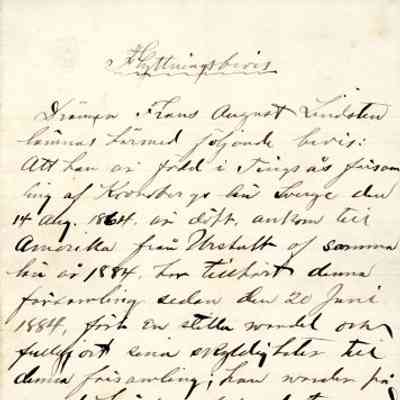 Flyttningsbevis
Frans August Lindsten
lämnas härmed följande bevis:
Att han är född i Tingsås försam
ling af Kronobergs län Sverge den
14 aug. 1864. är döpt, ankom till
Amerika från Urshult af samma
län år 1884, har tillhört denna
församling sedan den 20 Juni
1884, fört en stilla wandel och
fullgjort sina skyldigheter till
denna församling; han wandrar på